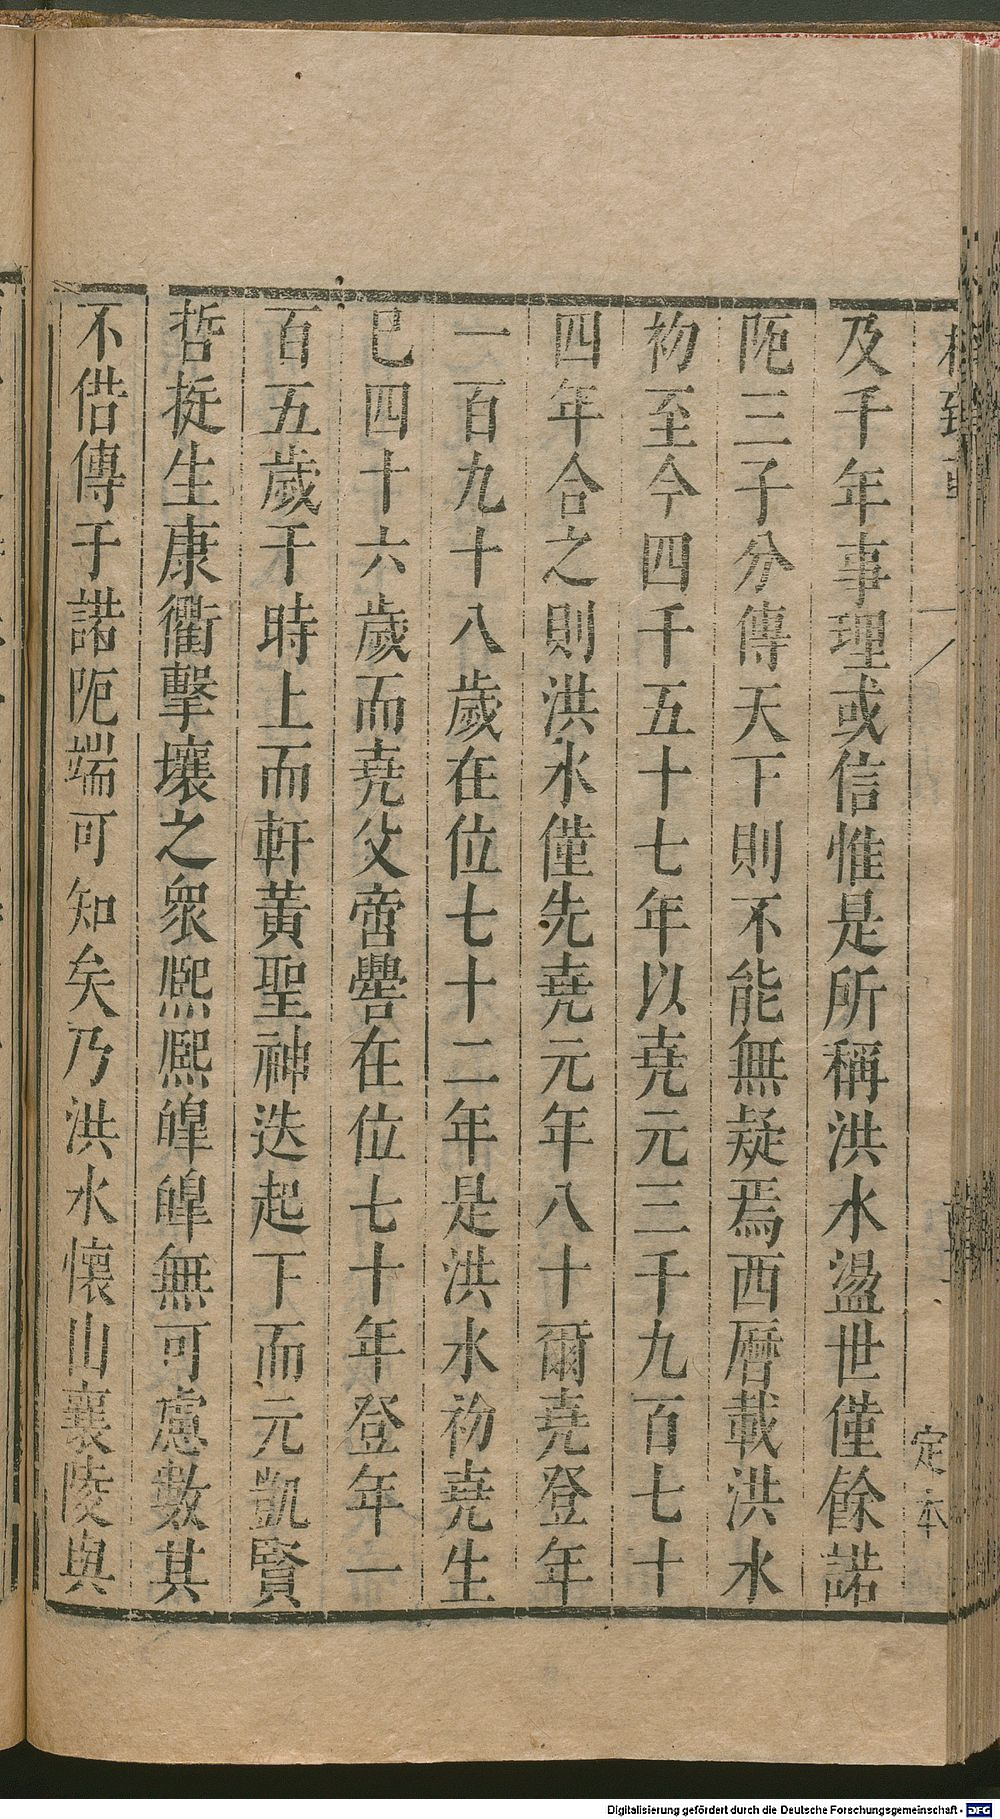 及千年事理或信惟是所稱洪水盪世僅餘諾
阨三子分傳天下則不能無疑焉西曆載洪水
初至今四千五十七年以堯元三千九百七十
四年合之則洪水僅先堯元年八十爾堯登年
一百九十八歲在位七十二年是洪水初堯生
已四十六歲而堯父帝嚳在位七十年登年一
百五歲于時上而軒黃聖神迭起下而元凱賢
哲挺生康衢擊壤之衆熈熈皥皥無可慮數其
不偕傳于諾阨端可知矣乃洪水懷山襄陵與
定本
Digitalisierung gefördert durch die Deutsche Forschungsgemeinschaft - DFG